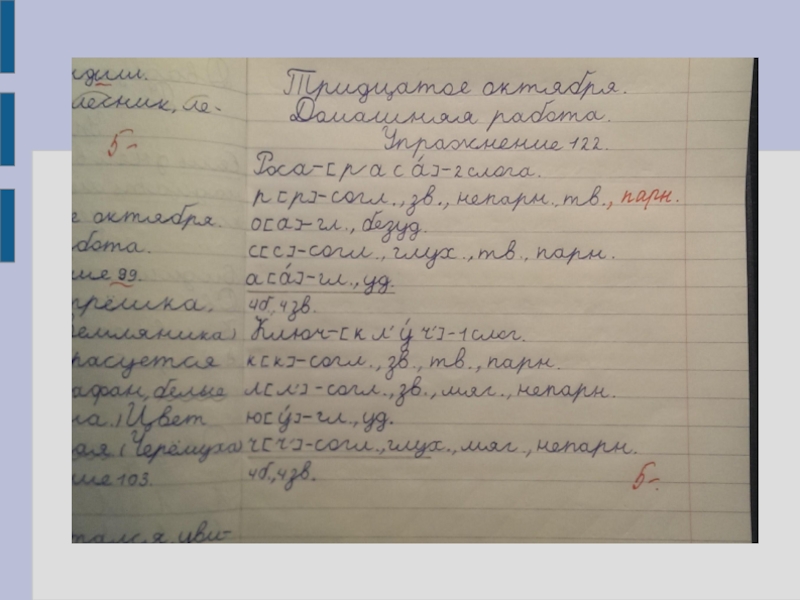 лесник, бе-
5-
е октября.
бота.
ние 99.
трёшка.
емляника)
расуется
афан, белые
на. (Цвет
ая (Черёмуха)
ние 103.
Тридцатое октября.
Домашняя работа.
Упражнение 122.
Роса-[р а с а́]-2 слога.
р[р]-согл., зв., непарн. тв., парн.
о[а]-гл., безуд.
с[с]-согл., глух., тв., парн.
а[а́]-гл., уд.
4б., 4зв.
Ключ-[к л' у́ ч']-1 слог.
к[к]-согл., зв., тв., парн.
л[л']-согл., зв., мяг., непарн.
ю[у́]-гл., уд.
ч[ч']-согл., глух., мяг., непарн.
4б., 4зв.
5-.